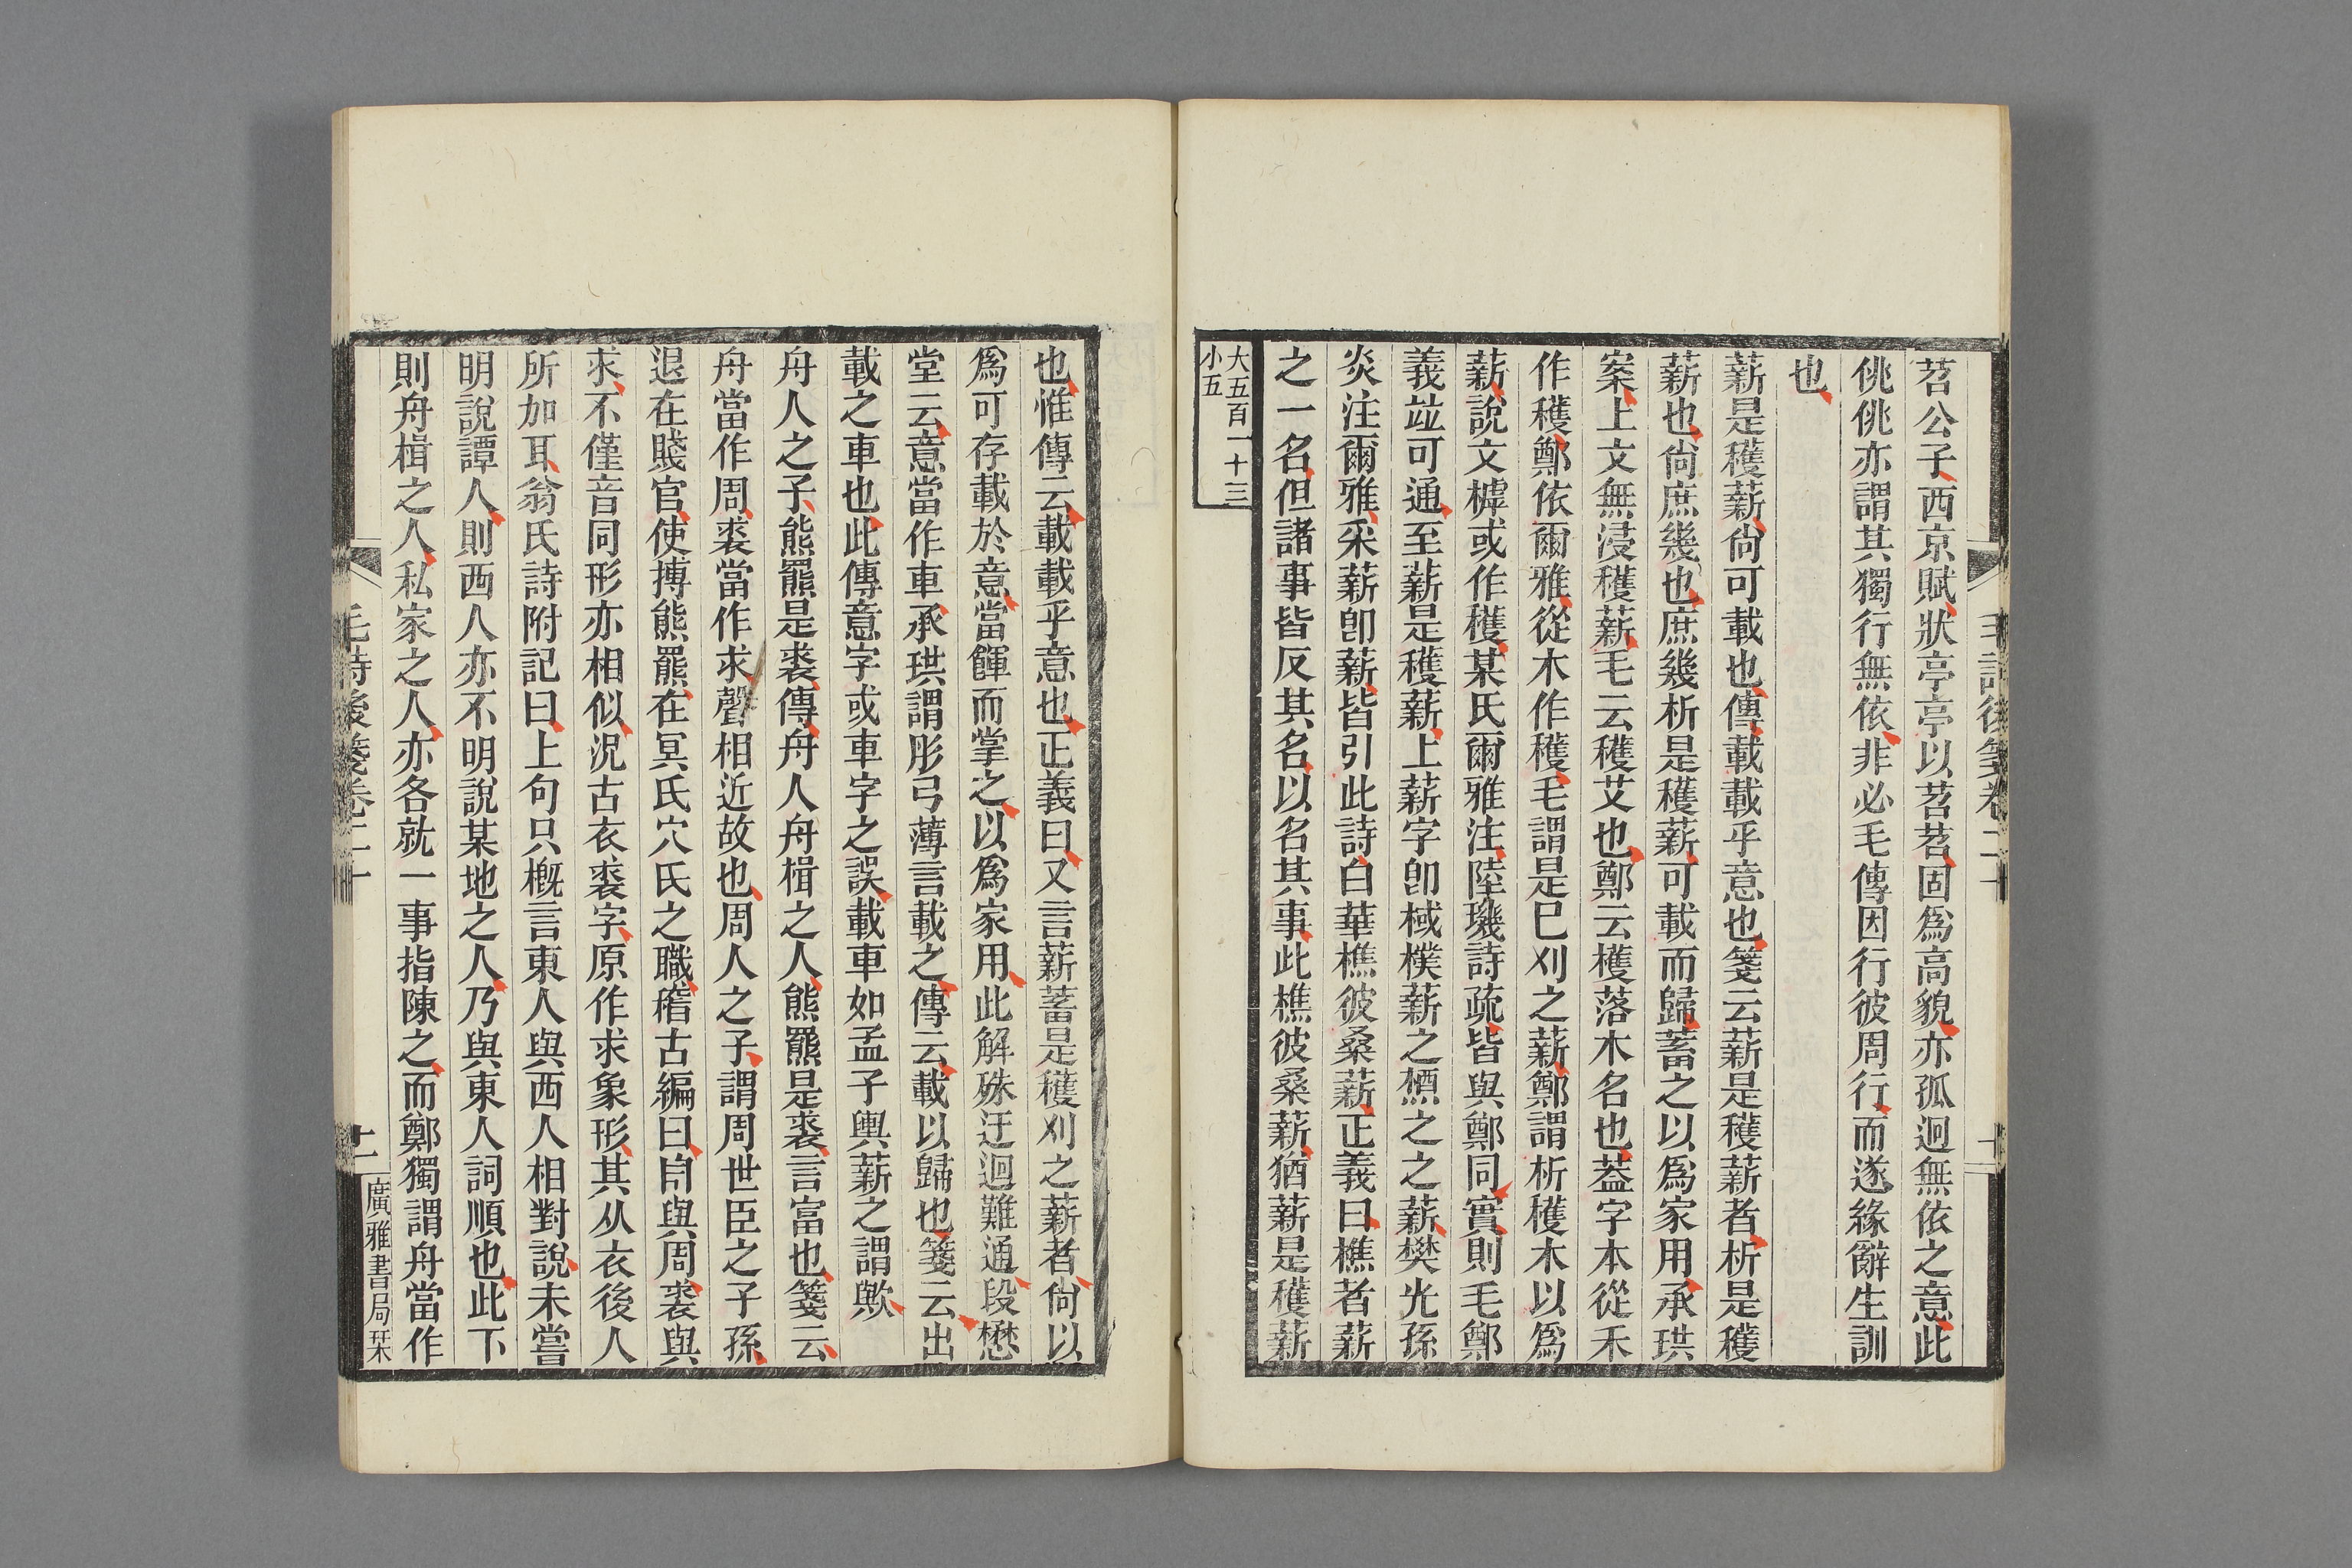 毛詩後箋卷二十
十
苕公子西京賦狀亭亭以苕苕固爲高貌亦孤迥無依之意此
佻佻亦謂其獨行無依非必毛傳因行彼周行而遂緣辭生訓
也
薪是穫薪尙可載也傳載載乎意也箋云薪是穫薪者析是穫
薪也尙庶幾也庶幾析是穫薪可載而歸蓄之以爲家用承珙
案上文無浸穫薪毛云穫艾也鄭云檴落木名也蓋字本從禾
作穫鄭依爾雅從木作檴毛謂是已刈之薪鄭謂析檴木以爲
薪說文樗或作檴某氏爾雅注陸璣詩疏皆與鄭同實則毛鄭
義竝可通至薪是穫薪上薪字卽棫樸薪之槱之之薪樊光孫
炎注爾雅采薪卽薪皆引此詩白華樵彼桑薪正義曰樵者薪
之一名但諸事皆反其名以名其事此樵彼桑薪猶薪是穫薪
大五百一十三
小五
也惟傳云載載乎意也正義曰又言薪蓄是穫刈之薪者尙以
爲可存載於意當餫而掌之以爲家用此解殊迂迴難通段懋
堂云意當作車承珙謂彤弓薄言載之傳云載以歸也箋云出
載之車也此傳意字或車字之誤載車如孟子輿薪之謂歟
舟人之子熊羆是裘傳舟人舟楫之人熊羆是裘言富也箋云
舟當作周裘當作求聲相近故也周人之子謂周世臣之子孫
退在賤官使搏熊羆在冥氏穴氏之職稽古編曰舟與周裘與
求不僅音同形亦相似況古衣裘字原作求象形其从衣後人
所加耳翁氏詩附記曰上句只槪言東人與西人相對說未嘗
明說譚人則西人亦不明說某地之人乃與東人詞順也此下
則舟楫之人私家之人亦各就一事指陳之而鄭獨謂舟當作
毛詩後箋卷二十
十一
廣雅書局栞